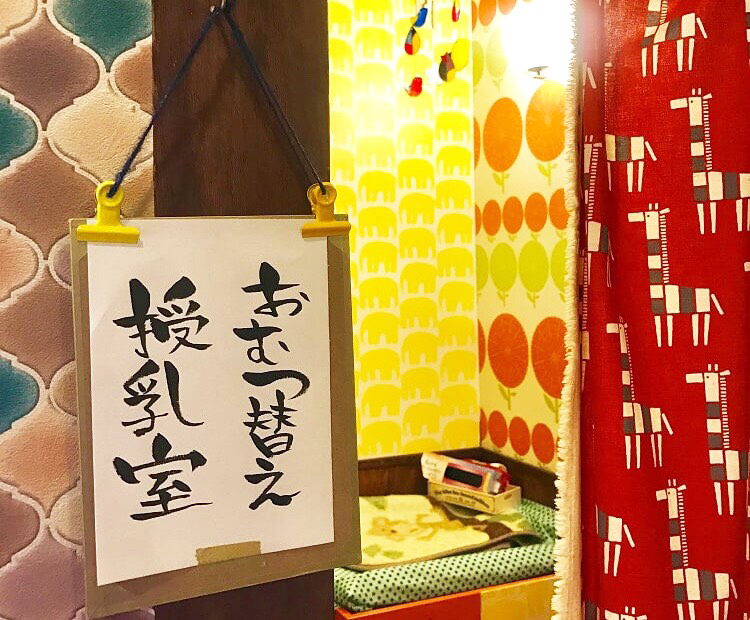 おむつ替え
授乳室